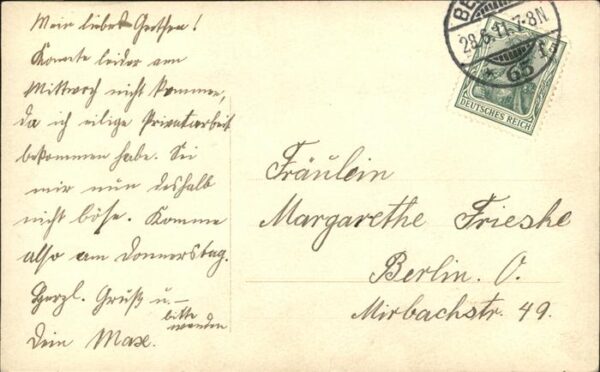 Mein liebes Gretchen!
Konnte leider am
Mittwoch nicht kommen,
da ich eilige Privatarbeit
bekommen habe. Sei
mir nun deshalb
nicht böse. Komme
also am Donnerstag.
Herzl. Gruß u. –
bitte
wenden
Dein Max.
28.6.11.7-8N
65
DEUTSCHES REICH
Fräulein
Margarethe Frieske
Berlin. O.
Mirbachstr. 49.